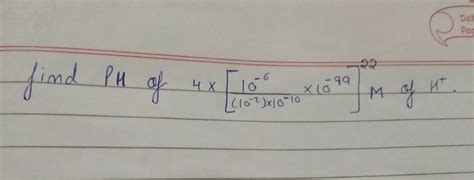 Dat
Pag
find PH of 4 × [10⁻⁶ / (10⁻²)×10⁻¹⁰ × 10⁻⁹⁹]²² M of H⁺.